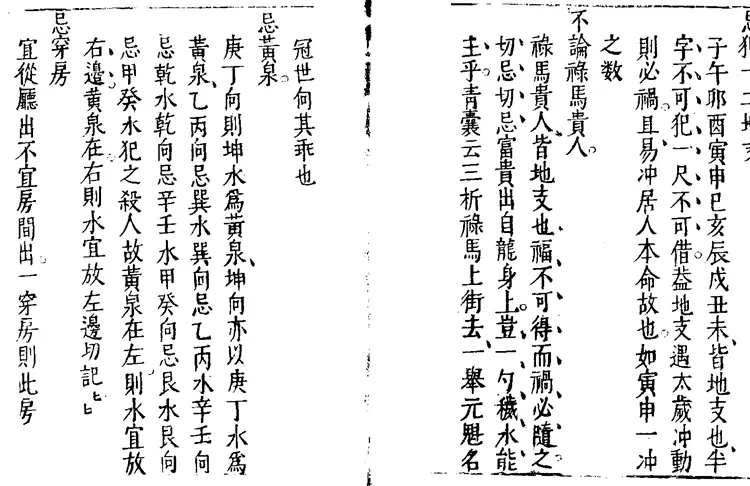 忌犯十二地支
子午卯酉寅申巳亥辰戌丑未皆地支也半
字不可犯一尺不可借益地支遇太歲冲動
則必禍且易冲居人本命故也如寅申一冲
之数
不論祿馬貴人
祿馬貴人皆地支也福不可得而禍必隨之
切忌切忌富貴出自龍身上豈一勺穢水能
主乎青囊云三折祿馬上街去一舉元魁名
冠世何其乖也
忌黃泉
庚丁向則坤水爲黃泉坤向亦以庚丁水爲
黃泉乙丙向忌巽水巽向忌乙丙水辛壬向
忌乾水乾向忌辛壬水甲癸向忌艮水艮向
忌甲癸水犯之殺人故黃泉在左則水宜放
右邊黃泉在右則水宜放左邊切記
忌穿房
宜從廳出不宜房間出一穿房則此房